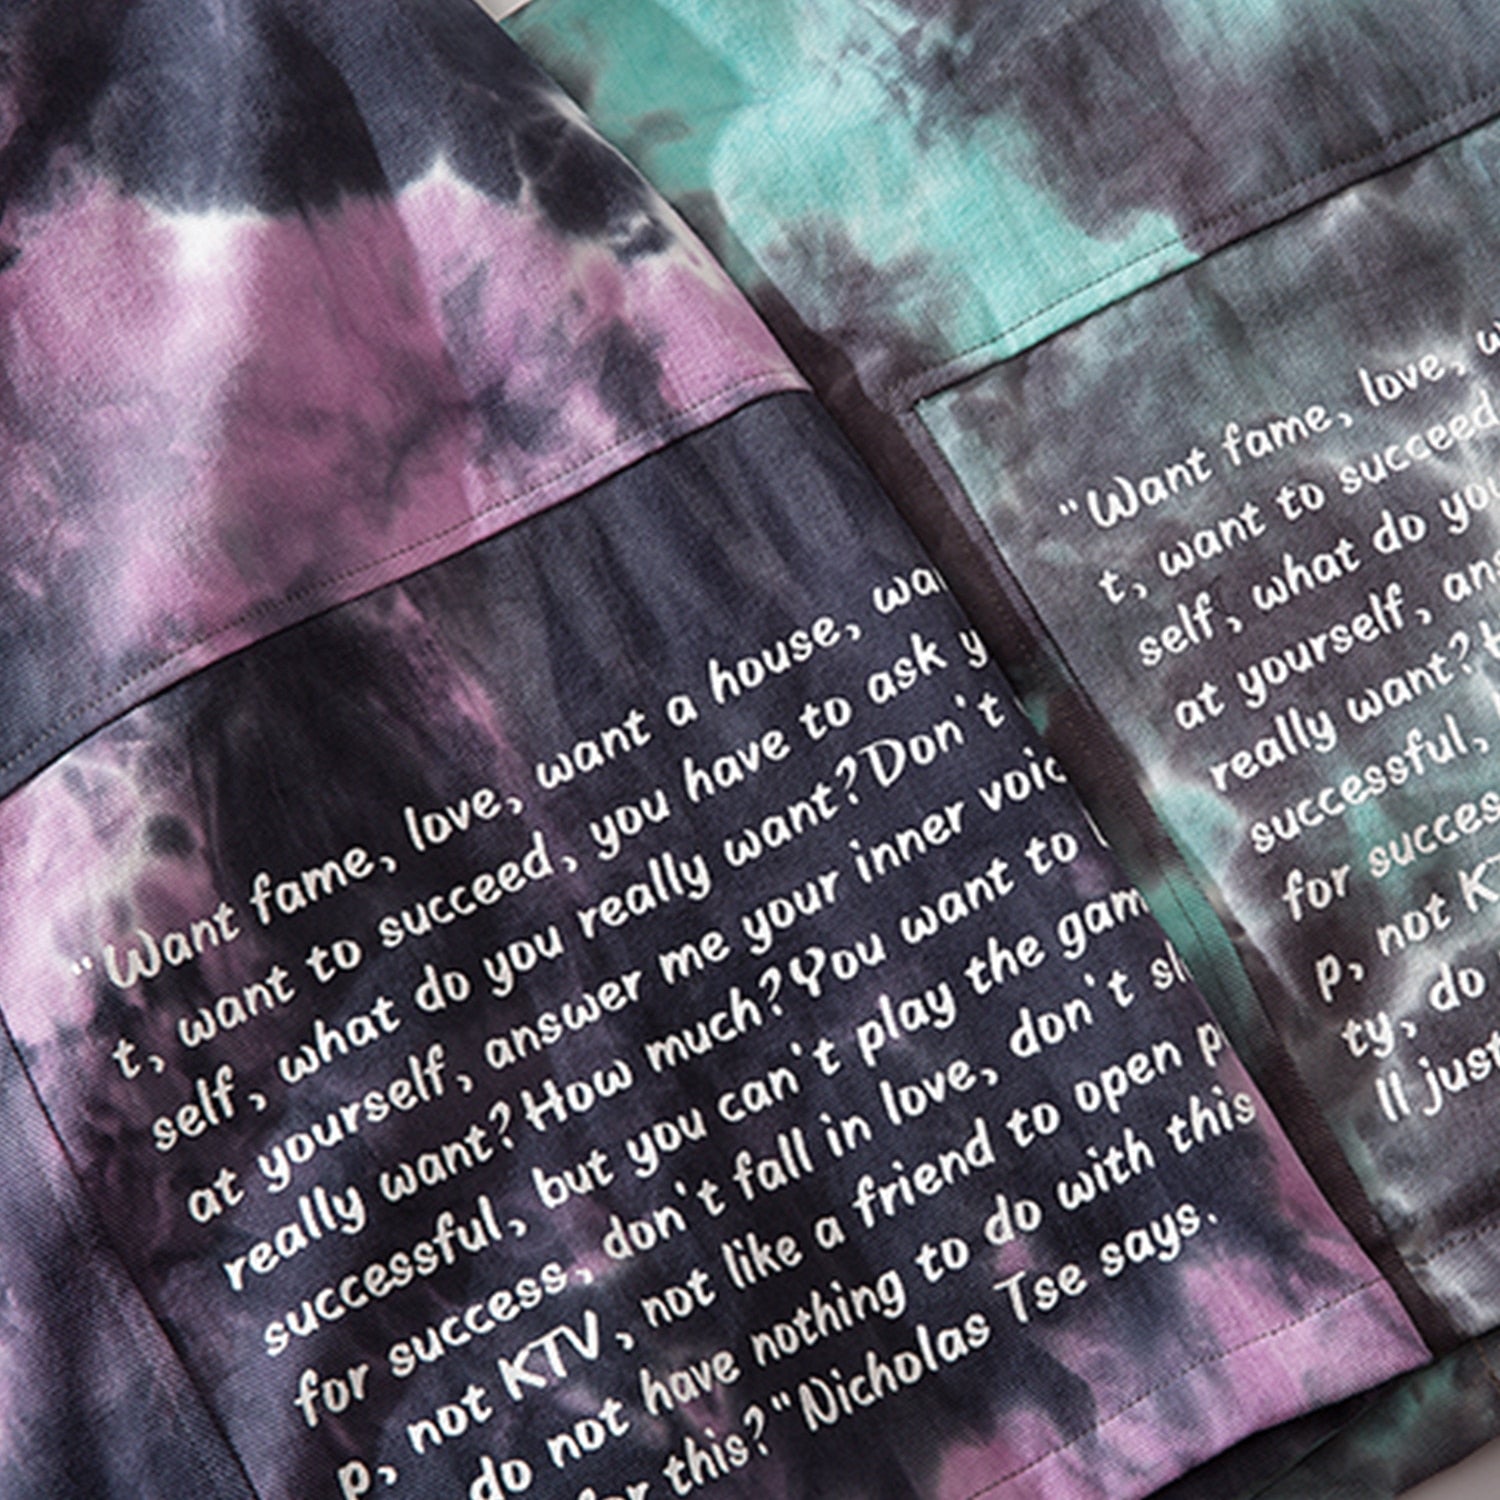 "Want fame, love, want a house, wa
t, want to succeed, you have to ask y
self, what do you really want?Don't
at yourself, answer me your inner voic
really want?How much?You want to
successful, but you can't play the gam
for success, don't fall in love, don't sl
p, not KTV, not like a friend to open p
do not have nothing to do with this
for this?"Nicholas Tse says.
"Want fame, love, w
t, want to succeed
self, what do you
at yourself, ans
really want?
successful,
for succes
p, not KT
ty, do
ll just